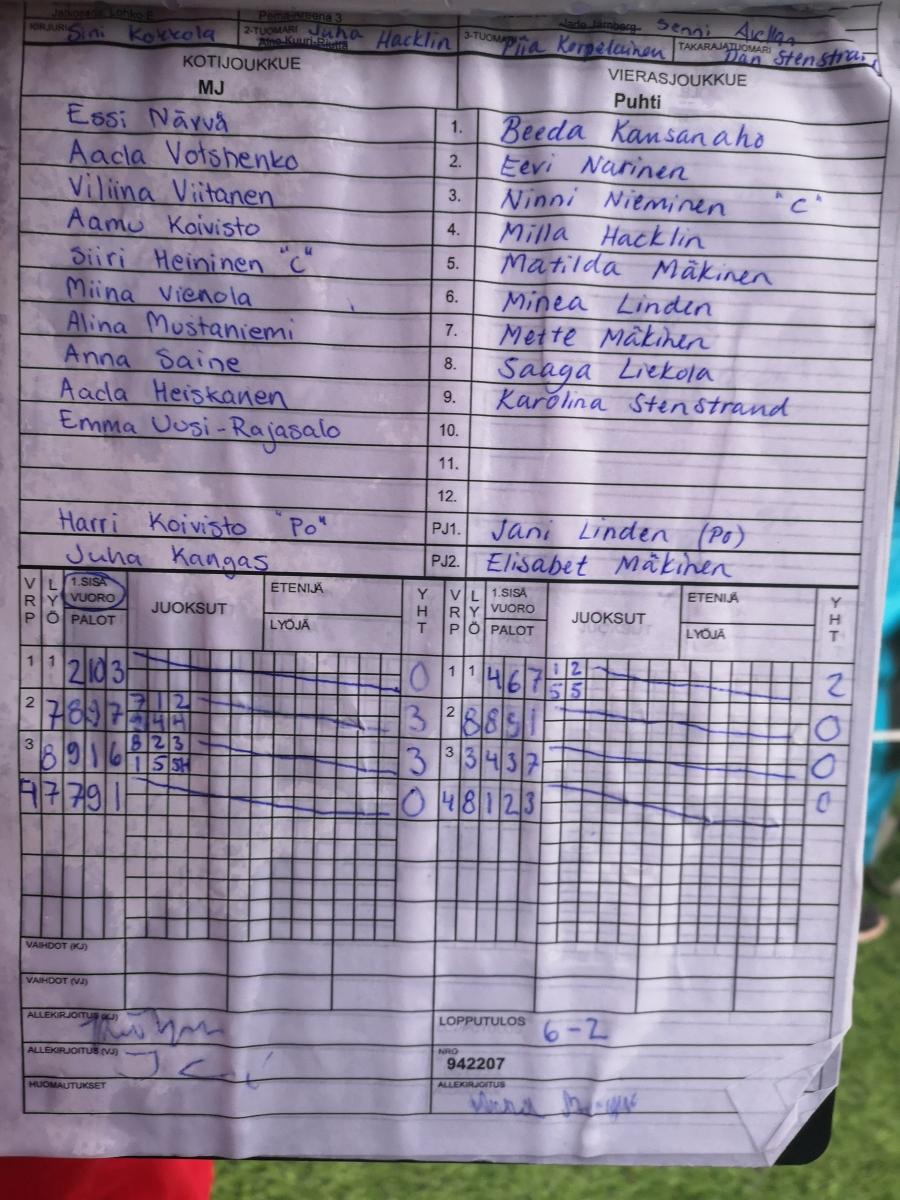 Jatkosarja, Lohko E Pema-Areena 3
KIRJURI Sini Kokkola 2-TUOMARI Juha Hacklin 3-TUOMARI Piia Korpelainen Senni TAKARAJATUOMARI Dan Stenstrand
KOTIJOUKKUE VIERASJOUKKUE
MJ Puhti
Essi Närvä 1. Beeda Kansanaho
Aada Votshenko 2. Eevi Narinen
Viliina Viitanen 3. Ninni Nieminen "C"
Aamu Koivisto 4. Milla Hacklin
Siiri Heininen "C" 5. Matilda Mäkinen
Miina Vienola 6. Minea Linden
Alina Mustaniemi 7. Mette Mäkinen
Anna Saine 8. Saaga Liekola
Aada Heiskanen 9. Karolina Stenstrand
Emma Uusi-Rajasalo 10.
11.
12.
Harri Koivisto "Po" PJ1. Jani Linden (Po)
Juha Kangas PJ2. Elisabet Mäkinen
VRP LYÖ 1.SISÄ VUORO PALOT JUOKSUT ETENIJÄ LYÖJÄ YHT VRP LYÖ 1.SISÄ VUORO PALOT JUOKSUT ETENIJÄ LYÖJÄ YHT
1 1 2 10 3 0 1 1 4 6 7 1 2 2
5 5
2 7 8 9 7 7 1 2 3 2 8 8 9 1 0
4 4
3 8 9 1 6 8 2 3 3 3 3 4 3 7 0
1 5
4 7 7 9 1 0 4 8 1 2 3 0
VAIHDOT (KJ)
VAIHDOT (VJ)
ALLEKIRJOITUS (KJ) LOPPUTULOS 6-2
ALLEKIRJOITUS (VJ) NRO 942207
HUOMAUTUKSET ALLEKIRJOITUS